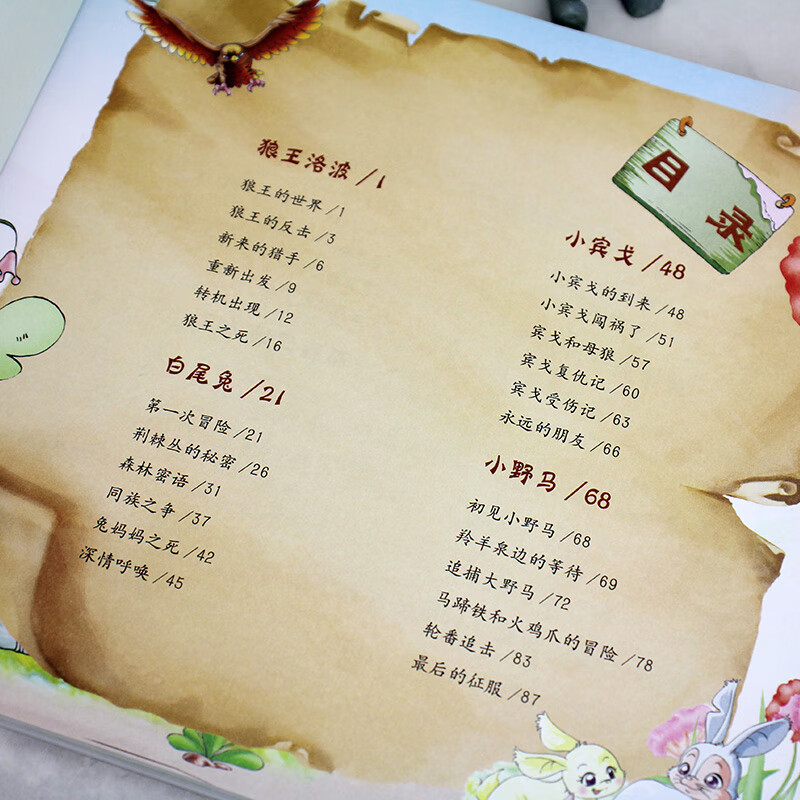 目录
狼王洛波 /1
狼王的世界 /1
狼王的反击 /3
新来的猎手 /6
重新出发 /9
转机出现 /12
狼王之死 /16
白尾兔 /21
第一次冒险 /21
荆棘丛的秘密 /26
森林密语 /31
同族之争 /37
兔妈妈之死 /42
深情呼唤 /45
小宾戈 /48
小宾戈的到来 /48
小宾戈闯祸了 /51
宾戈和母狼 /57
宾戈复仇记 /60
宾戈受伤记 /63
永远的朋友 /66
小野马 /68
初见小野马 /68
羚羊泉边的等待 /69
追捕大野马 /72
马蹄铁和火鸡爪的冒险 /78
轮番追击 /83
最后的征服 /87